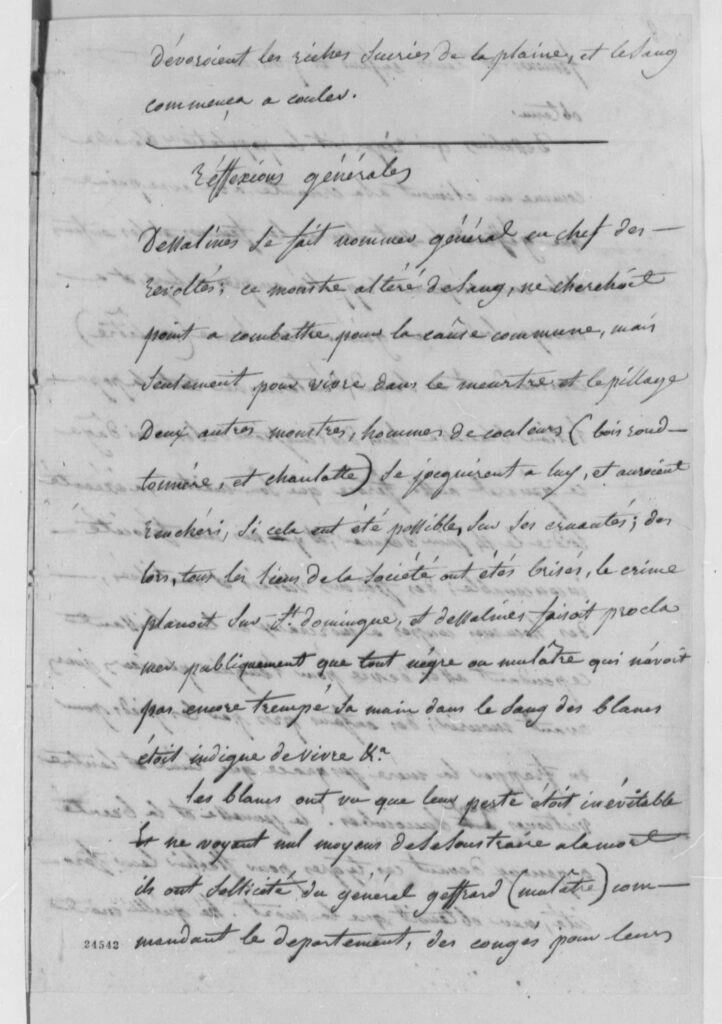 dévoroient les riches sucries de la plaine, et le sang
commença a couler.
Réfléxions générales
Dessalines se fait nommer général en chef des
revoltés; ce monstre altéré de sang, ne cherchoit
point a combattre pour la cause commune, mais
seulement pour vivre dans le meurtre et le pillage
Deux autres monstres, hommes de couleurs (bois rond-
tonnére, et chanlatte) se joignirent a luy, et auroient
renchéri, si cela eut été possible, sur ses cruautés; des
lors, tous les liens de la société ont étés brisés, le crime
planoit sur St. domingue, et dessalines faisoit procla
mer publiquement que tout négre ou mulâtre qui n'avoit
pas encore trempé sa main dans le sang des blancs
étoit indigne de vivre &a
Les blancs ont vu que leur perte étoit inévitable
Et ne voyant nul moyens de se soustraire a la mort
ils ont sollicité du général geffrard (mulâtre) com-
mandant le departement, des congés pour leurs
24542